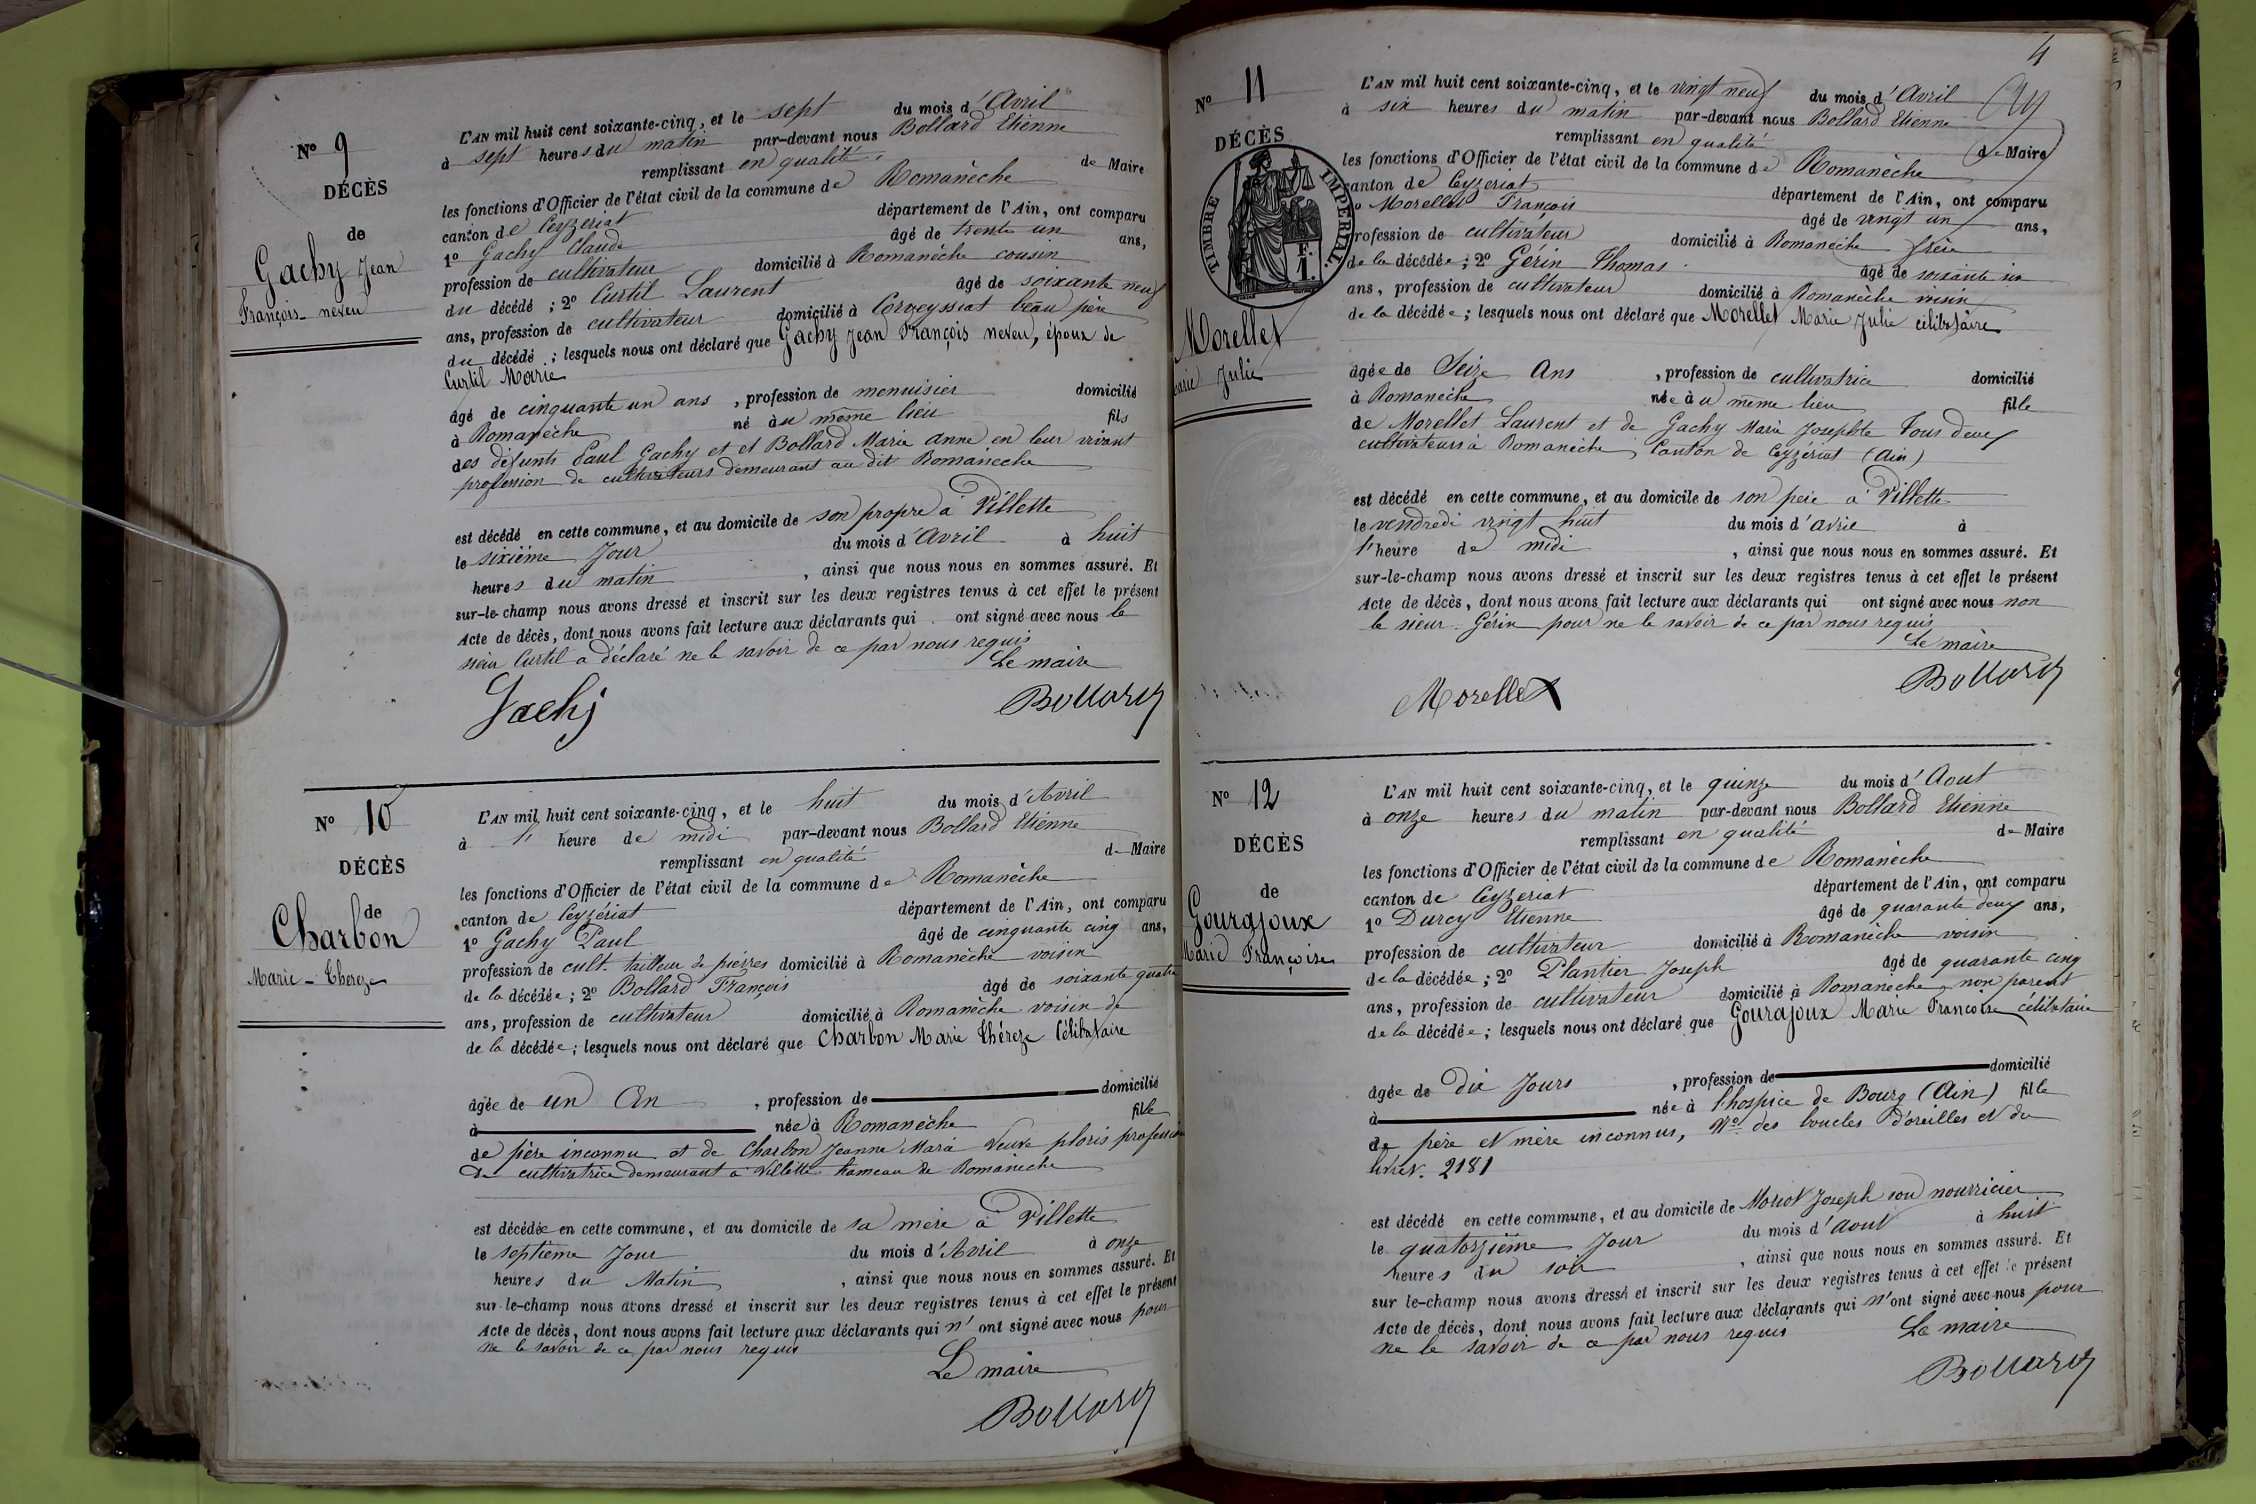 N° 9
DÉCÈS
de
Gachy Jean
François-neveu
L'AN mil huit cent soixante-cinq, et le sept du mois d'Avril
à sept heures du matin par-devant nous Bollard Etienne
remplissant en qualité de Maire
les fonctions d'Officier de l'état civil de la commune de Romanèche
canton de Ceyzeriat département de l'Ain, ont comparu
1° Gachy Claude âgé de trente un ans,
profession de cultivateur domicilié à Romanèche cousin
du décédé ; 2° Curtil Laurent âgé de soixante neuf
ans, profession de cultivateur domicilié à Corveyssiat beau père
du décédé ; lesquels nous ont déclaré que Gachy Jean François neveu, époux de
Curtil Marie
âgé de cinquante un ans , profession de menuisier domicilié
à Romanèche né au même lieu fils
des défunts Paul Gachy et et Bollard Marie anne en leur vivant
profession de cultivateurs demeurant au dit Romanèche
est décédé en cette commune, et au domicile de son propre à Villette
le sixième Jour du mois d'Avril à huit
heures du matin , ainsi que nous nous en sommes assuré. Et
sur-le-champ nous avons dressé et inscrit sur les deux registres tenus à cet effet le présent
Acte de décès, dont nous avons fait lecture aux déclarants qui ont signé avec nous le
sieur Curtil a déclaré ne le savoir de ce par nous requis
Le maire
Gachj Bollard
N° 10
DÉCÈS
de
Charbon
Marie-Thereze
L'AN mil huit cent soixante-cinq, et le huit du mois d'Avril
à 1' heure de midi par-devant nous Bollard Etienne
remplissant en qualité de Maire
les fonctions d'Officier de l'état civil de la commune de Romanèche
canton de Ceyzériat département de l'Ain, ont comparu
1° Gachy Paul âgé de cinquante cinq ans,
profession de cult. tailleur de pierres domicilié à Romanèche voisin
de la décédée ; 2° Bollard François âgé de soixante quatre
ans, profession de cultivateur domicilié à Romanèche voisin de
de la décédée ; lesquels nous ont déclaré que Charbon Marie Thérèze Célibataire
âgée de un An , profession de domicilié
à née à Romanèche fille
de père inconnu et de Charbon Jeanne Maria Veuve ploris profession
de cultivatrice demeurant à Villette hameau de Romanèche
est décédée en cette commune, et au domicile de sa mère à Villette
le septième Jour du mois d'Avril à onze
heures du Matin , ainsi que nous nous en sommes assuré. Et
sur-le-champ nous avons dressé et inscrit sur les deux registres tenus à cet effet le présent
Acte de décès, dont nous avons fait lecture aux déclarants qui n'ont signé avec nous pour
ne le savoir de ce par nous requis
Le maire
Bollard
4
N° 11
DÉCÈS
TIMBRE IMPÉRIAL.
F.
1.
Morellet
Marie Julie
L'AN mil huit cent soixante-cinq, et le vingt neuf du mois d'Avril
à six heures du matin par-devant nous Bollard Etienne
remplissant en qualité de Maire
les fonctions d'Officier de l'état civil de la commune de Romanèche
canton de Ceyzeriat département de l'Ain, ont comparu
1° Morellet François âgé de vingt un ans,
profession de cultivateur domicilié à Romanèche frère
de la décédée ; 2° Gérin Thomas âgé de soixante six
ans, profession de cultivateur domicilié à Romanèche voisin
de la décédée ; lesquels nous ont déclaré que Morellet Marie Julie célibataire
âgée de Seize Ans , profession de cultivatrice domicilié
à Romanèche née au même lieu fille
de Morellet Laurent et de Gachy Marie Josephte Tous deux
cultivateurs à Romanèche Canton de Ceyzériat (Ain)
est décédé en cette commune, et au domicile de son père à Villette
le vendredi vingt huit du mois d'avril à
1'heure de midi , ainsi que nous nous en sommes assuré. Et
sur-le-champ nous avons dressé et inscrit sur les deux registres tenus à cet effet le présent
Acte de décès, dont nous avons fait lecture aux déclarants qui ont signé avec nous non
le sieur Gérin pour ne le savoir de ce par nous requis
Le maire
Morellet Bollard
N° 12
DÉCÈS
de
Gourajoux
Marie Françoise
L'AN mil huit cent soixante-cinq, et le quinze du mois d'Aout
à onze heures du matin par-devant nous Bollard Etienne
remplissant en qualité de Maire
les fonctions d'Officier de l'état civil de la commune de Romanèche
canton de Ceyzeriat département de l'Ain, ont comparu
1° Durcy Etienne âgé de quarante deux ans,
profession de cultivateur domicilié à Romanèche voisin
de la décédée ; 2° Plantier Joseph âgé de quarante cinq
ans, profession de cultivateur domicilié à Romanèche, non parent
de la décédée ; lesquels nous ont déclaré que Gourajoux Marie Françoise célibataire
âgée de Dix Jours , profession de domicilié
à née à l'hospice de Bourg (Ain) fille
de père et mère inconnus, N° des boucles d'oreilles et du
livret. 2181
est décédé en cette commune, et au domicile de Moriot Joseph son nourricier
le quatorzième Jour du mois d'Aout à huit
heures du soir , ainsi que nous nous en sommes assuré. Et
sur le-champ nous avons dressé et inscrit sur les deux registres tenus à cet effet le présent
Acte de décès, dont nous avons fait lecture aux déclarants qui n'ont signé avec nous pour
ne le savoir de ce par nous requis
Le maire
Bollard